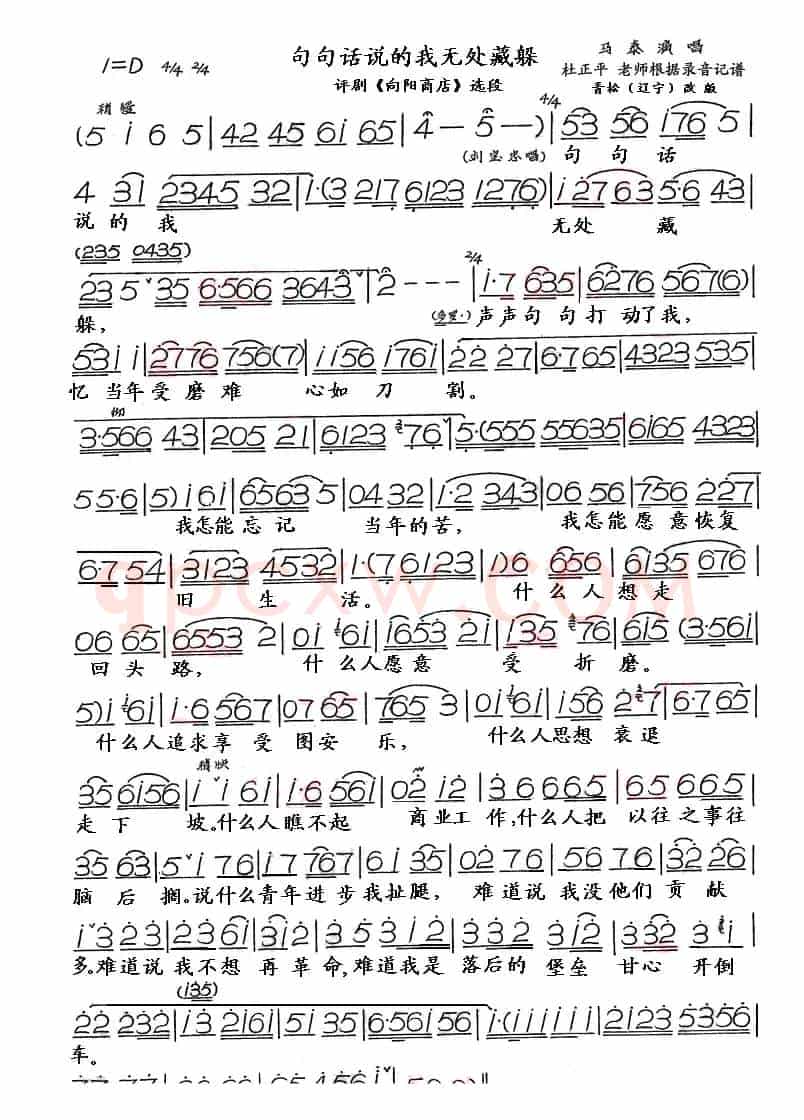 1=D 4/4 2/4
句句话说的我无处藏躲
马泰演唱
评剧《向阳商店》选段
杜正平 老师根据录音记谱
青松（辽宁）改版
稍慢
4/4
(5 i 6 5 | 42 45 6i 65 | 4 — 5 —) | 53 56 i76 5 |
(刘宝忠唱) 句 句 话
4 31 2345 32 | 1·(3 217 6123 1276) | i 2763 5·6 43 |
说 的 我 无处 藏
(235 0435)
2/4
23 5ˇ35 6·566 3643ˇ | 2 - - - | i·7 635 | 6276 567(6) |
躲， 声声句 句打 动了我，
53i i | 2776 756(7) | i i56 i76i | 22 27 | 6·765 | 4323 535 |
忆 当年受 磨 难 心如 刀 割。
3·566 43 | 205 21 | 6123 76 | 5·(555 55635 | 6165 4323 |
55·6 | 5) i 6i | 65635 | 0432 | 1·2 343 | 06 56 | 756 227 |
我怎能忘记 当年的苦， 我怎能愿意恢复
6·754 | 3123 4532 | 1·(7 6123 | 1)6 656 | 6i35 676 |
旧 生 活。 什么人想走
06 65 | 6553 2 | 0i 6i | i653 2i | i35 76 | 6i5 (3·56i |
回头路， 什么人愿意 受 折 磨。
5) i 6i | i·6 567 | 07 65 | 765 3 | 0i 6i | i56 27 | 6·765 |
什么人追求享 受图安 乐， 什么人思想 衰退
稍快
35 6i56 | iˇi 6i | i·6 56i | 02 i2 | 36 665 | 65 665 |
走下 坡。什么人瞧不起 商业工作，什么人把 以往之事往
35 63 | 5ˇi 76 | i7 767 | 6i 35 | 02 76 | 56 76 | 32 26 |
脑后搁。说什么青年进步我扯腿， 难道说我没他们贡献
iˇ3 23 | 23 6i | 3i 23 | 35 3i2 | 35 23 | 332 | 3 i |
多。难道说我不想再革命，难道我是落后的 堡垒甘心开倒
(i35)
22 232 | i3 2i6i | 5i 35 | 6·56i 56 | i·(iii iiii | 2123 5356 |
车。
qpcxw.COM